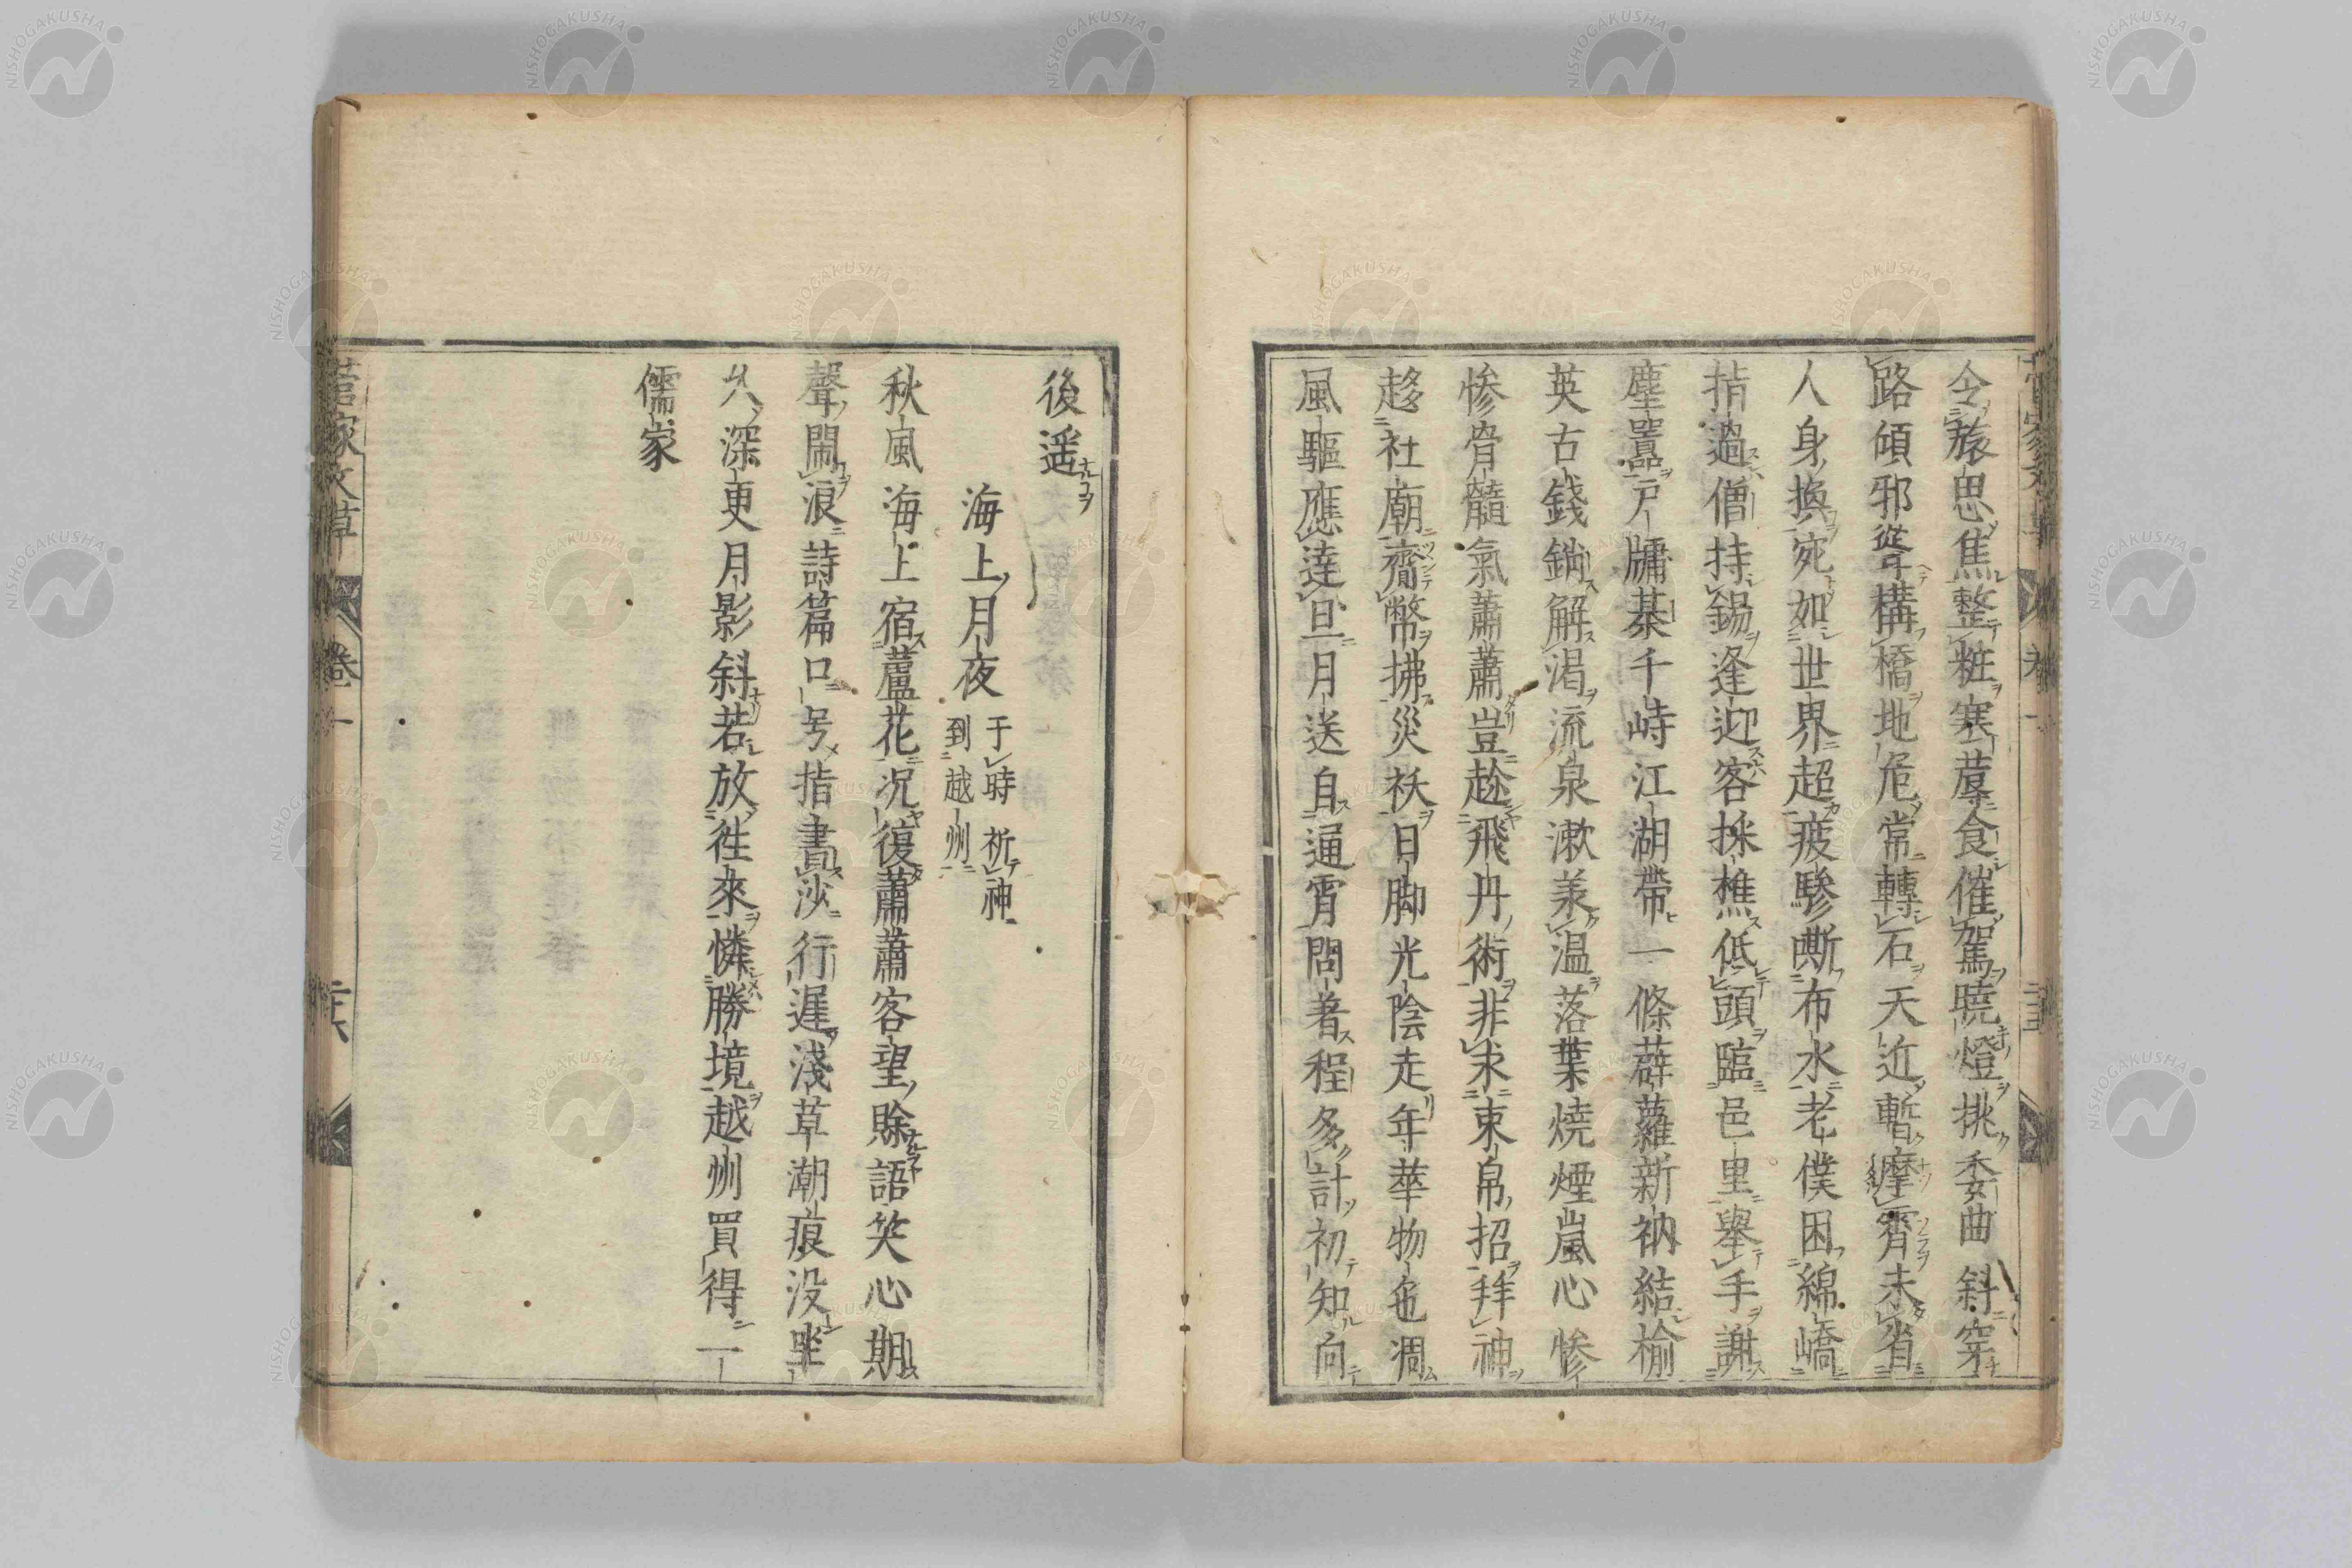 令旅思焦整粧塞蓐食催駕曉燈挑委曲斜穿
路傾邪從構橋地危常轉石天近暫纏霄未省
人身換宛如世界超疲驂嘶布水老僕困綿嶠
指過僧持錫逢迎客採樵低頭臨邑里擧手謝
塵囂戸牖棊千峙江湖帶一條薜蘿新衲結楡
英古錢銷解渇流泉漱羕温落葉燒煙嵐心慘
慘骨髓氣蕭蕭豈趁飛丹術非求束帛招拜神
趍社廟齎幣拂災祅日脚光陰走年華物色凋
風驅應達旦月送自通宵問著程多計初知向
後遥
海上月夜 于時祈神
到越州
秋風海上宿蘆花况復蕭蕭客望賖語笑心期
聲閙浪詩篇口号指書沙行遲淺草潮痕没坐
久深更月影斜若放往來憐勝境越州買得一
儒家
菅家文草 卷一 二十六
NISHOGAKUSHA